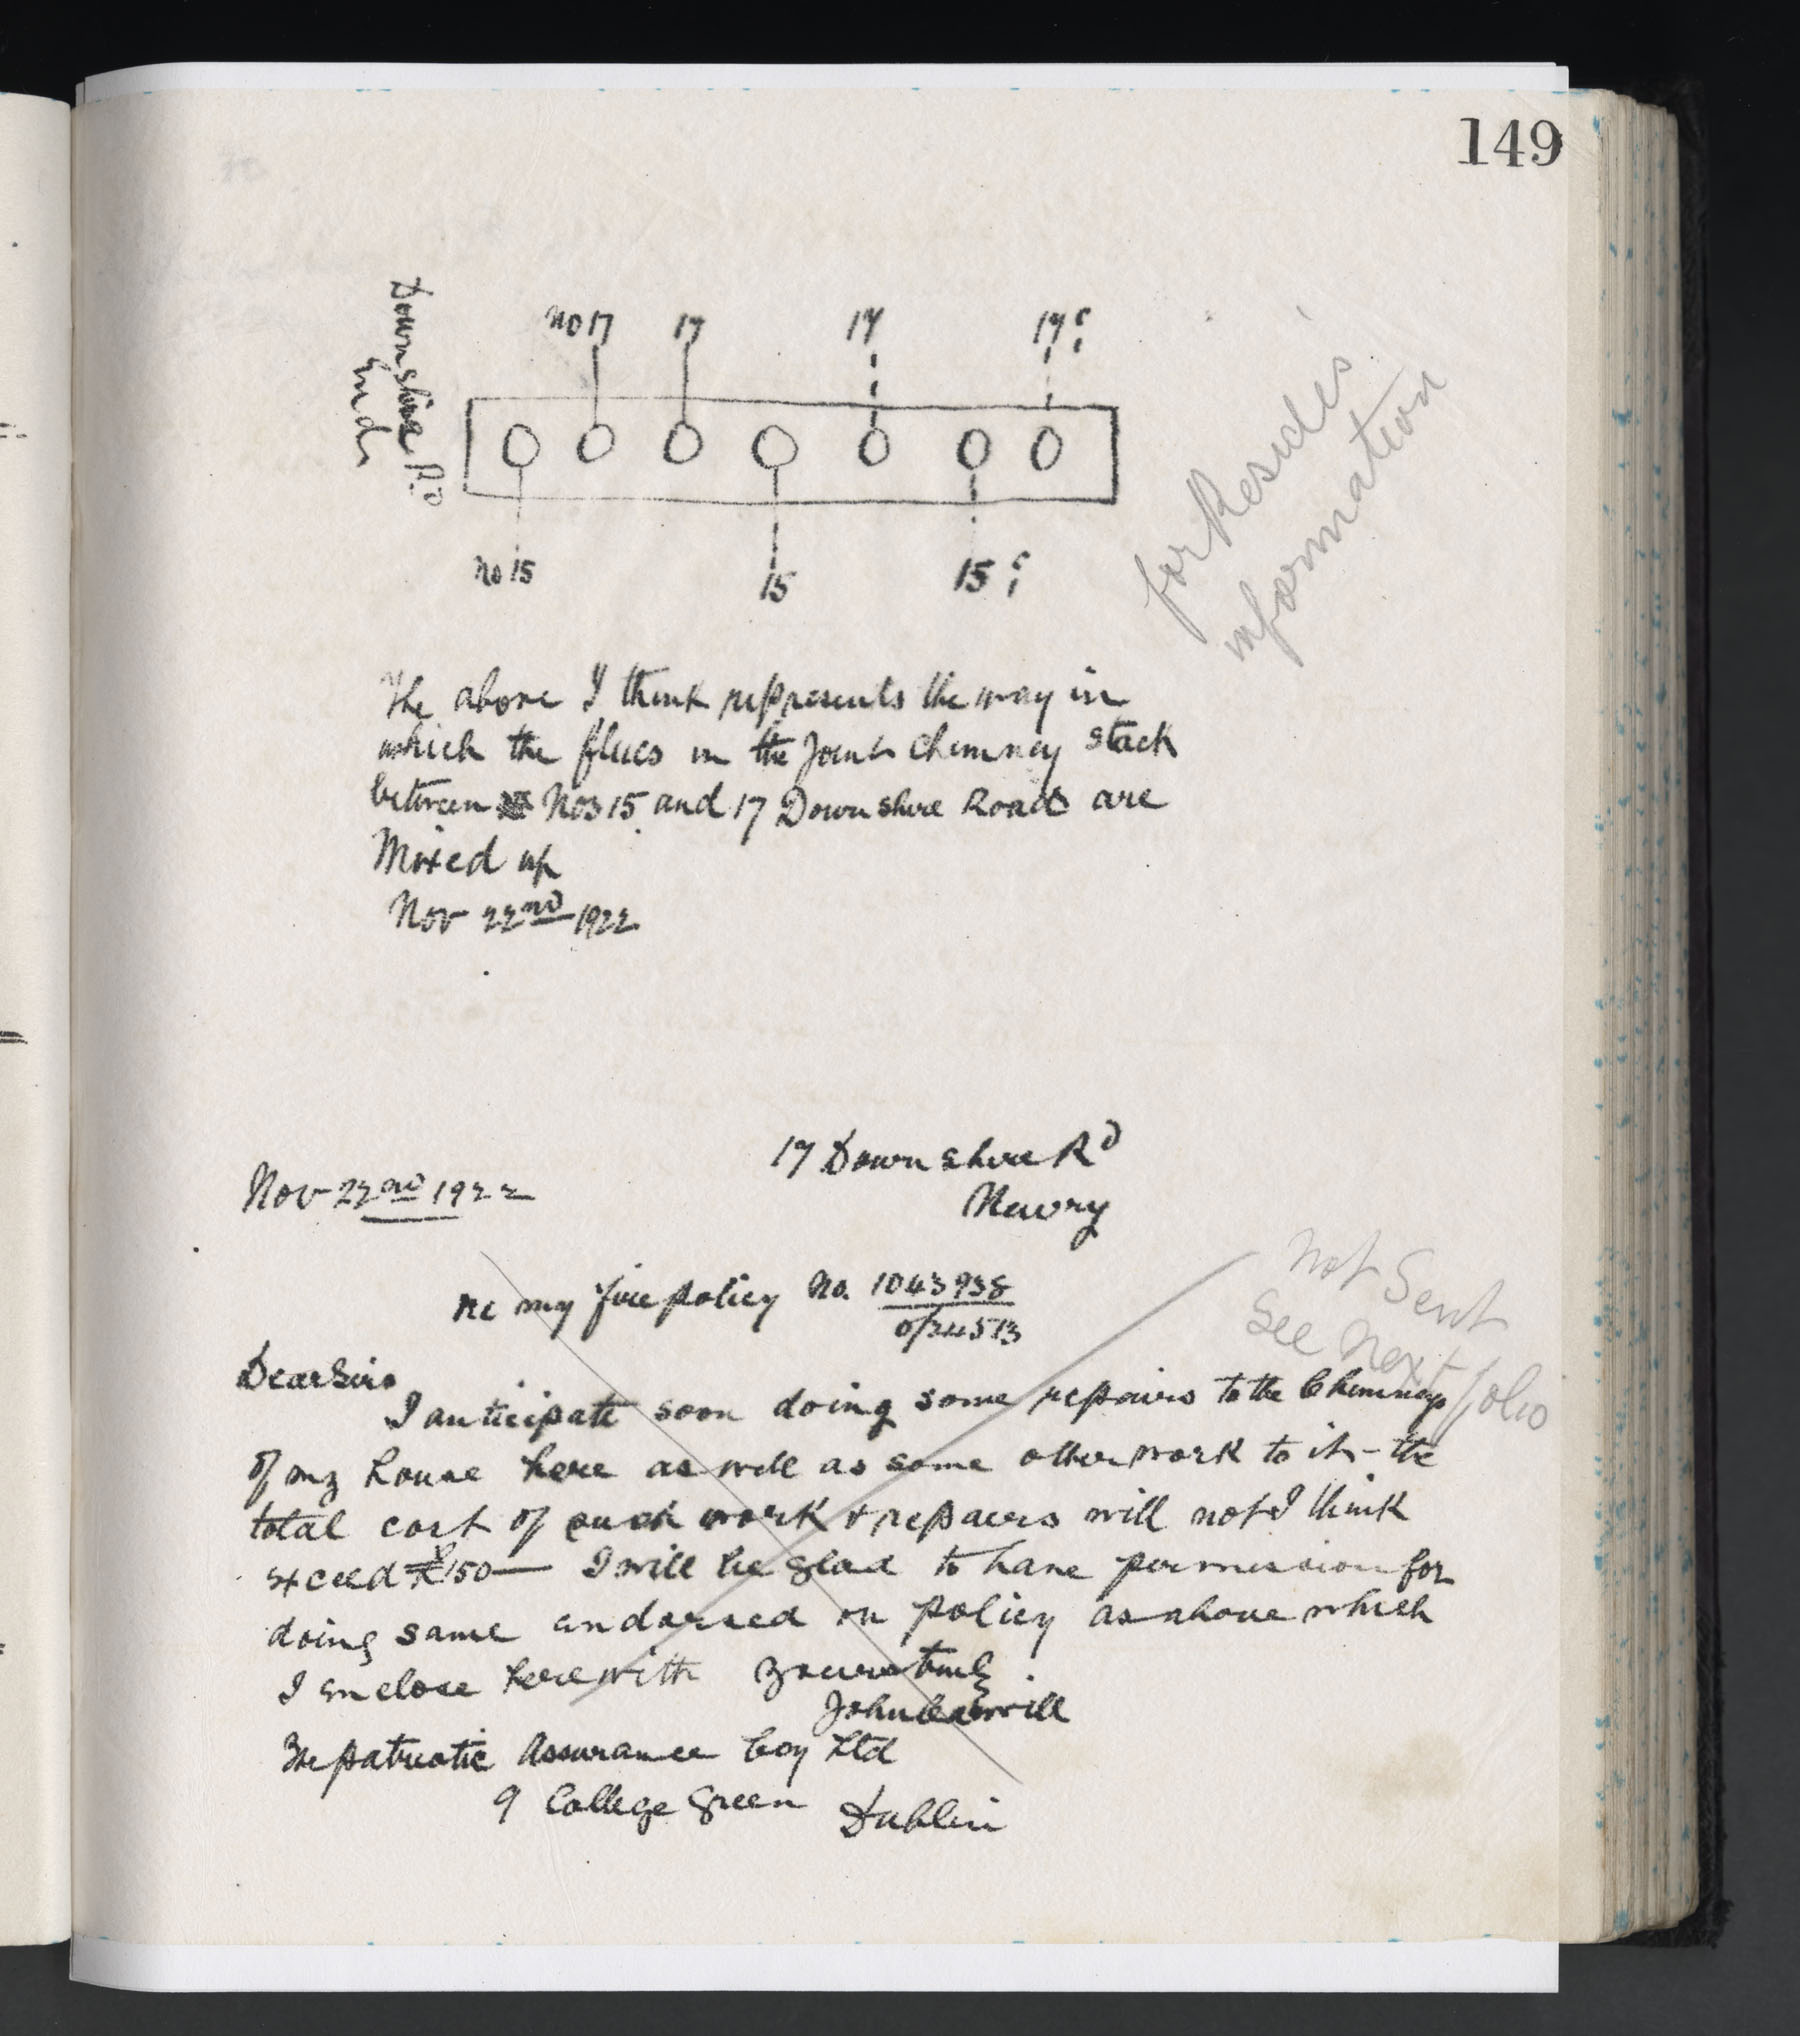 149
Downshire Rd
End
No 17 17 17 17?
No 15 15 15?
for Resides
information
The above I think represents the way in
which the flues in the Joint Chimney Stack
between Nos 15 and 17 Downshire Road are
Mixed up
Nov 22nd 1922
17 Downshire Rd
Newry
Nov 22nd 1922
Not Sent
See Next folio
re my fire policy No. 1043938
0/24513
Dear Sirs
I anticipate soon doing some repairs to the Chimneys
of my house here as well as some other work to it - the
total cost of such work & repairs will not I think
exceed £150 — I will be glad to have permission for
doing same endorsed on policy as above which
I enclose herewith yours truly
John
The patriotic Assurance Coy Ltd
9 College Green Dublin